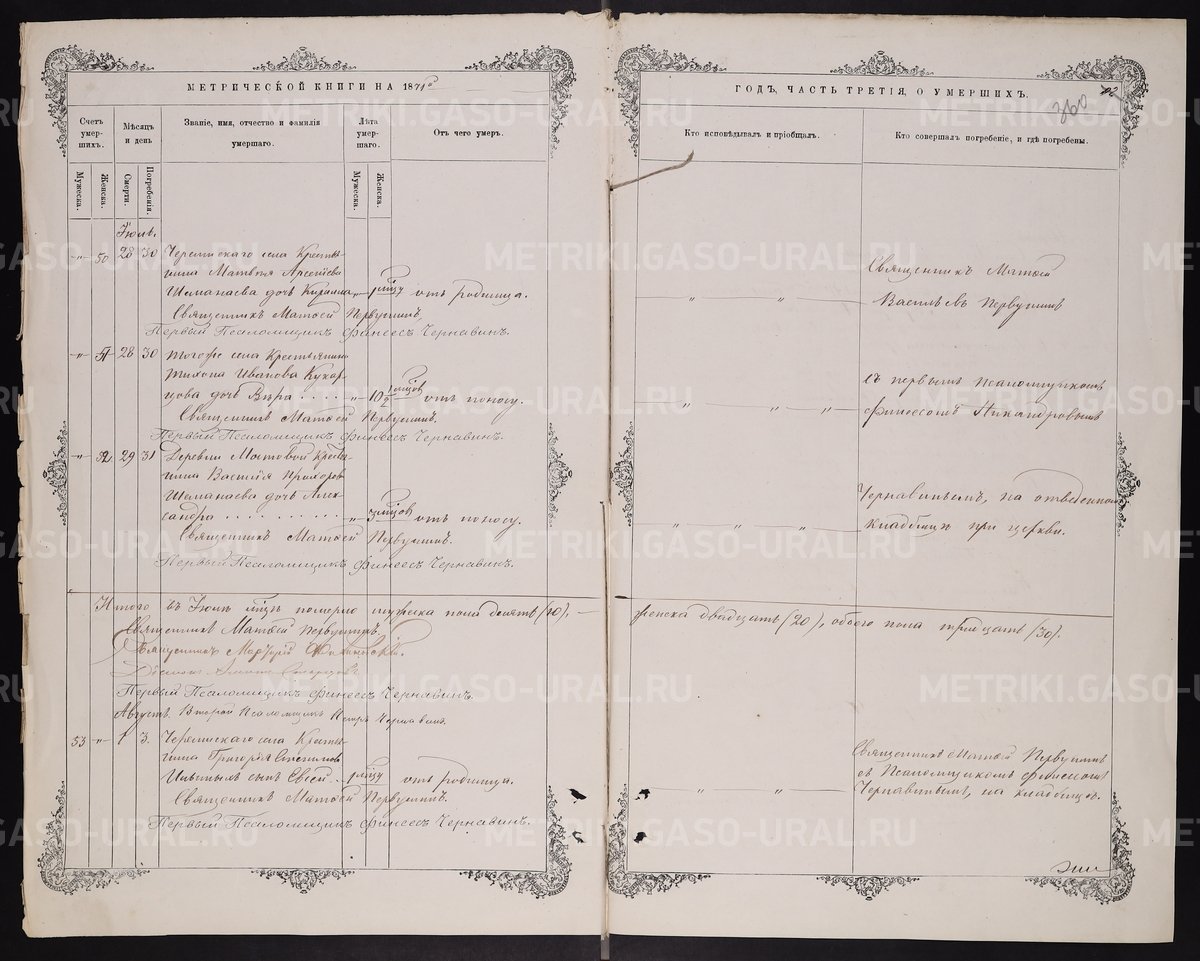 МЕТРИЧЕСКОЙ КНИГИ НА 1871й
ГОДЪ, ЧАСТЬ ТРЕТІЯ, О УМЕРШИХЪ.
360
Счетъ умершихъ.
Мѣсяцъ и день
Званіе, имя, отчество и фамилія умершаго.
Лѣта умершаго.
Отъ чего умеръ.
Кто исповѣдывалъ и пріобщалъ.
Кто совершалъ погребеніе, и гдѣ погребены.
Мужеска.
Женска.
Смерти.
Погребенія.
Мужеска.
Женска.
Іюль.
50 28 30 Черемискаго села Кресть-
янина Матвѣя Арсеніева
Шаманаева дочь 1 мѣц отъ родимца.
Священникъ Матѳей Первушинъ.
Первый Псаломщикъ Финеесъ Чернавинъ.
Священникъ Матѳей
Васильевъ Первушинъ
51 28 30 Тогоже села Крестьянина
Тихона Иванова Кухар-
цова дочь Вѣра 10 1/2 мѣцов отъ поносу.
Священникъ Матѳей Первушинъ.
Первый Псаломщикъ Финеесъ Чернавинъ.
съ первымъ псаломщикомъ
Финеесомъ Никандровымъ
52 29 31 Деревни Матовой Кресть-
янина Василія Прохорова
Шаманаева дочь Алек-
сандра 3 мѣцов отъ поносу.
Священникъ Матѳей Первушинъ.
Первый Псаломщикъ Финеесъ Чернавинъ.
Чернавинымъ, на отведенномъ
кладбищѣ при церкви.
Итого въ Іюлѣ мѣцѣ померло мужеска пола десять (10).
женска двадцать (20), обоего пола тридцать (30).
Священникъ Матѳей Первушинъ.
Священникъ
Первый Псаломщикъ Финеесъ Чернавинъ.
Августъ. Второй Псаломщикъ Петръ Чернавинъ
53 1 3. Черемискаго села Кресть-
янина Григорія
сынъ Евсей 1 мѣц отъ родимца.
Священникъ Матѳей Первушинъ.
Первый Псаломщикъ Финеесъ Чернавинъ.
Священникъ Матѳей Первушинъ
съ Псаломщикомъ Финеесомъ
Чернавинымъ, на кладбищѣ.
METRIKI.GASO-URAL.RU